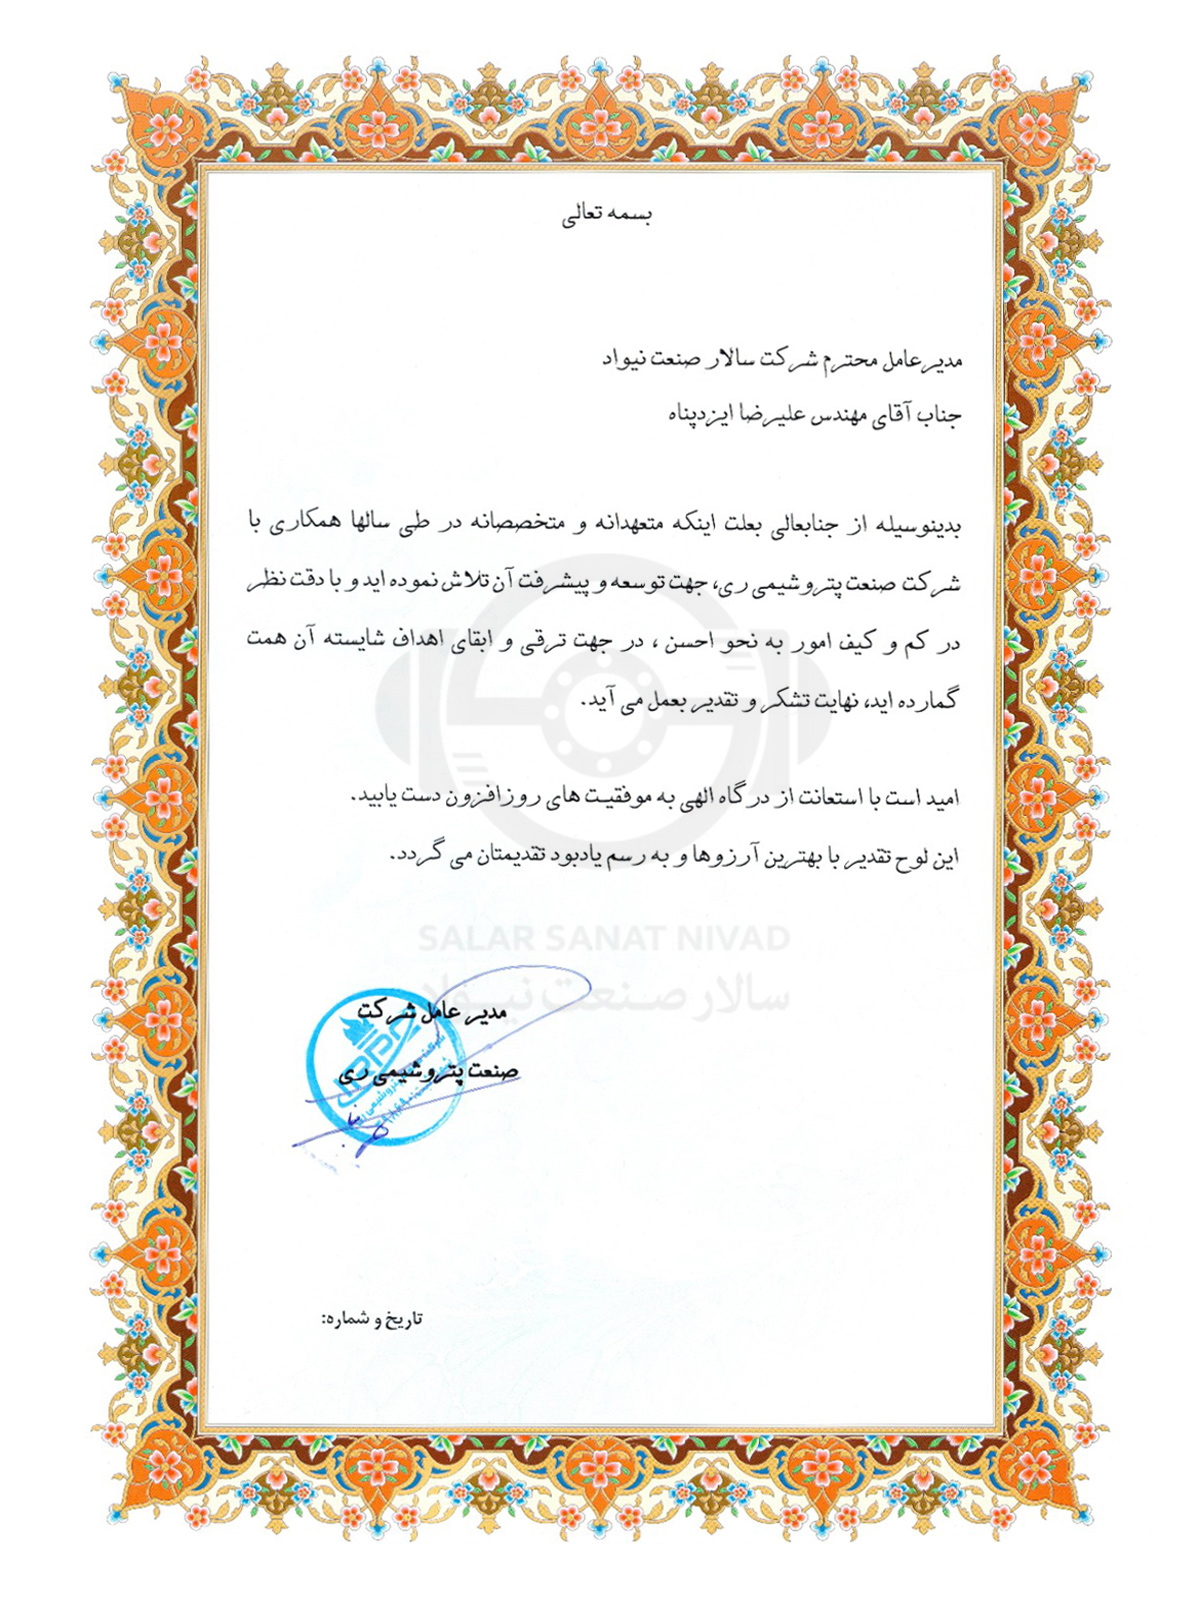 بسمه تعالی
مدیرعامل محترم شرکت سالار صنعت نیواد
جناب آقای مهندس علیرضا ایزدپناه
بدینوسیله از جنابعالی بعلت اینکه متعهدانه و متخصصانه در طی سالها همکاری با
شرکت صنعت پتروشیمی ری، جهت توسعه و پیشرفت آن تلاش نموده اید و با دقت نظر
در کم و کیف امور به نحو احسن ، در جهت ترقی و ابقای اهداف شایسته آن همت
گمارده اید، نهایت تشکر و تقدیر بعمل می آید.
امید است با استعانت از درگاه الهی به موفقیت های روزافزون دست یابید.
این لوح تقدیر با بهترین آرزوها و به رسم یادبود تقدیمتان می گردد.
SALAR SANAT NIVAD
سالار صنعت نیواد
مدیر عامل شرکت
صنعت پتروشیمی ری
تاریخ و شماره: